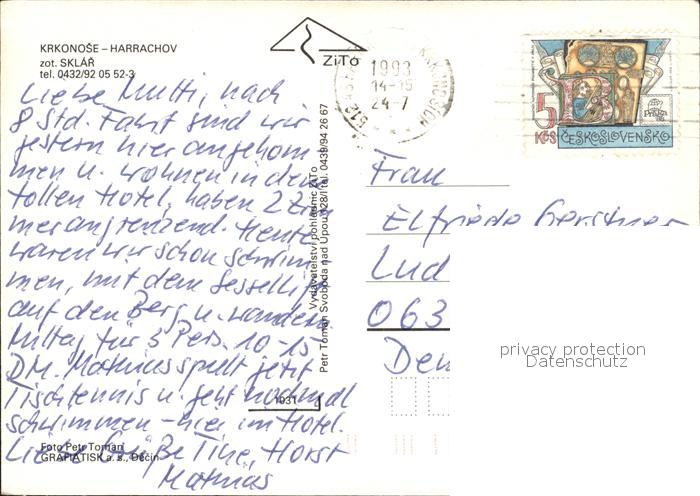 KRKONOŠE – HARRACHOV
zot. SKLÁŘ
tel. 0432/92 05 52-3
ZiTo
Liebe Mutti, nach
8 Std. Fahrt sind wir
gestern hier angekom-
men u. wohnen in dem
tollen Hotel, haben 2 Zim-
mer angrenzend. Heute
waren wir schon schwim-
men, mit dem Sessellift
auf den Berg u. wandern.
Mittag für 3 Pers. 10-15
DM. Mathias spielt jetzt
Tischtennis u. geht nochmal
schwimmen – hier im Hotel.
Liebe Grüße Tine, Horst
Mathias
Foto Petr Toman
GRAFIATISK a. s., Děčín
1031
Vydavatelství pohlednic ZiTo
Petr Toman Svoboda nad Úpou 528/I tel. 0439/94 26 67
1993
14-15
24-7
5
Kčs
ČESKOSLOVENSKO
Praga
Frau
Elfriede Gerstner
Lud
063
privacy protection
Datenschutz